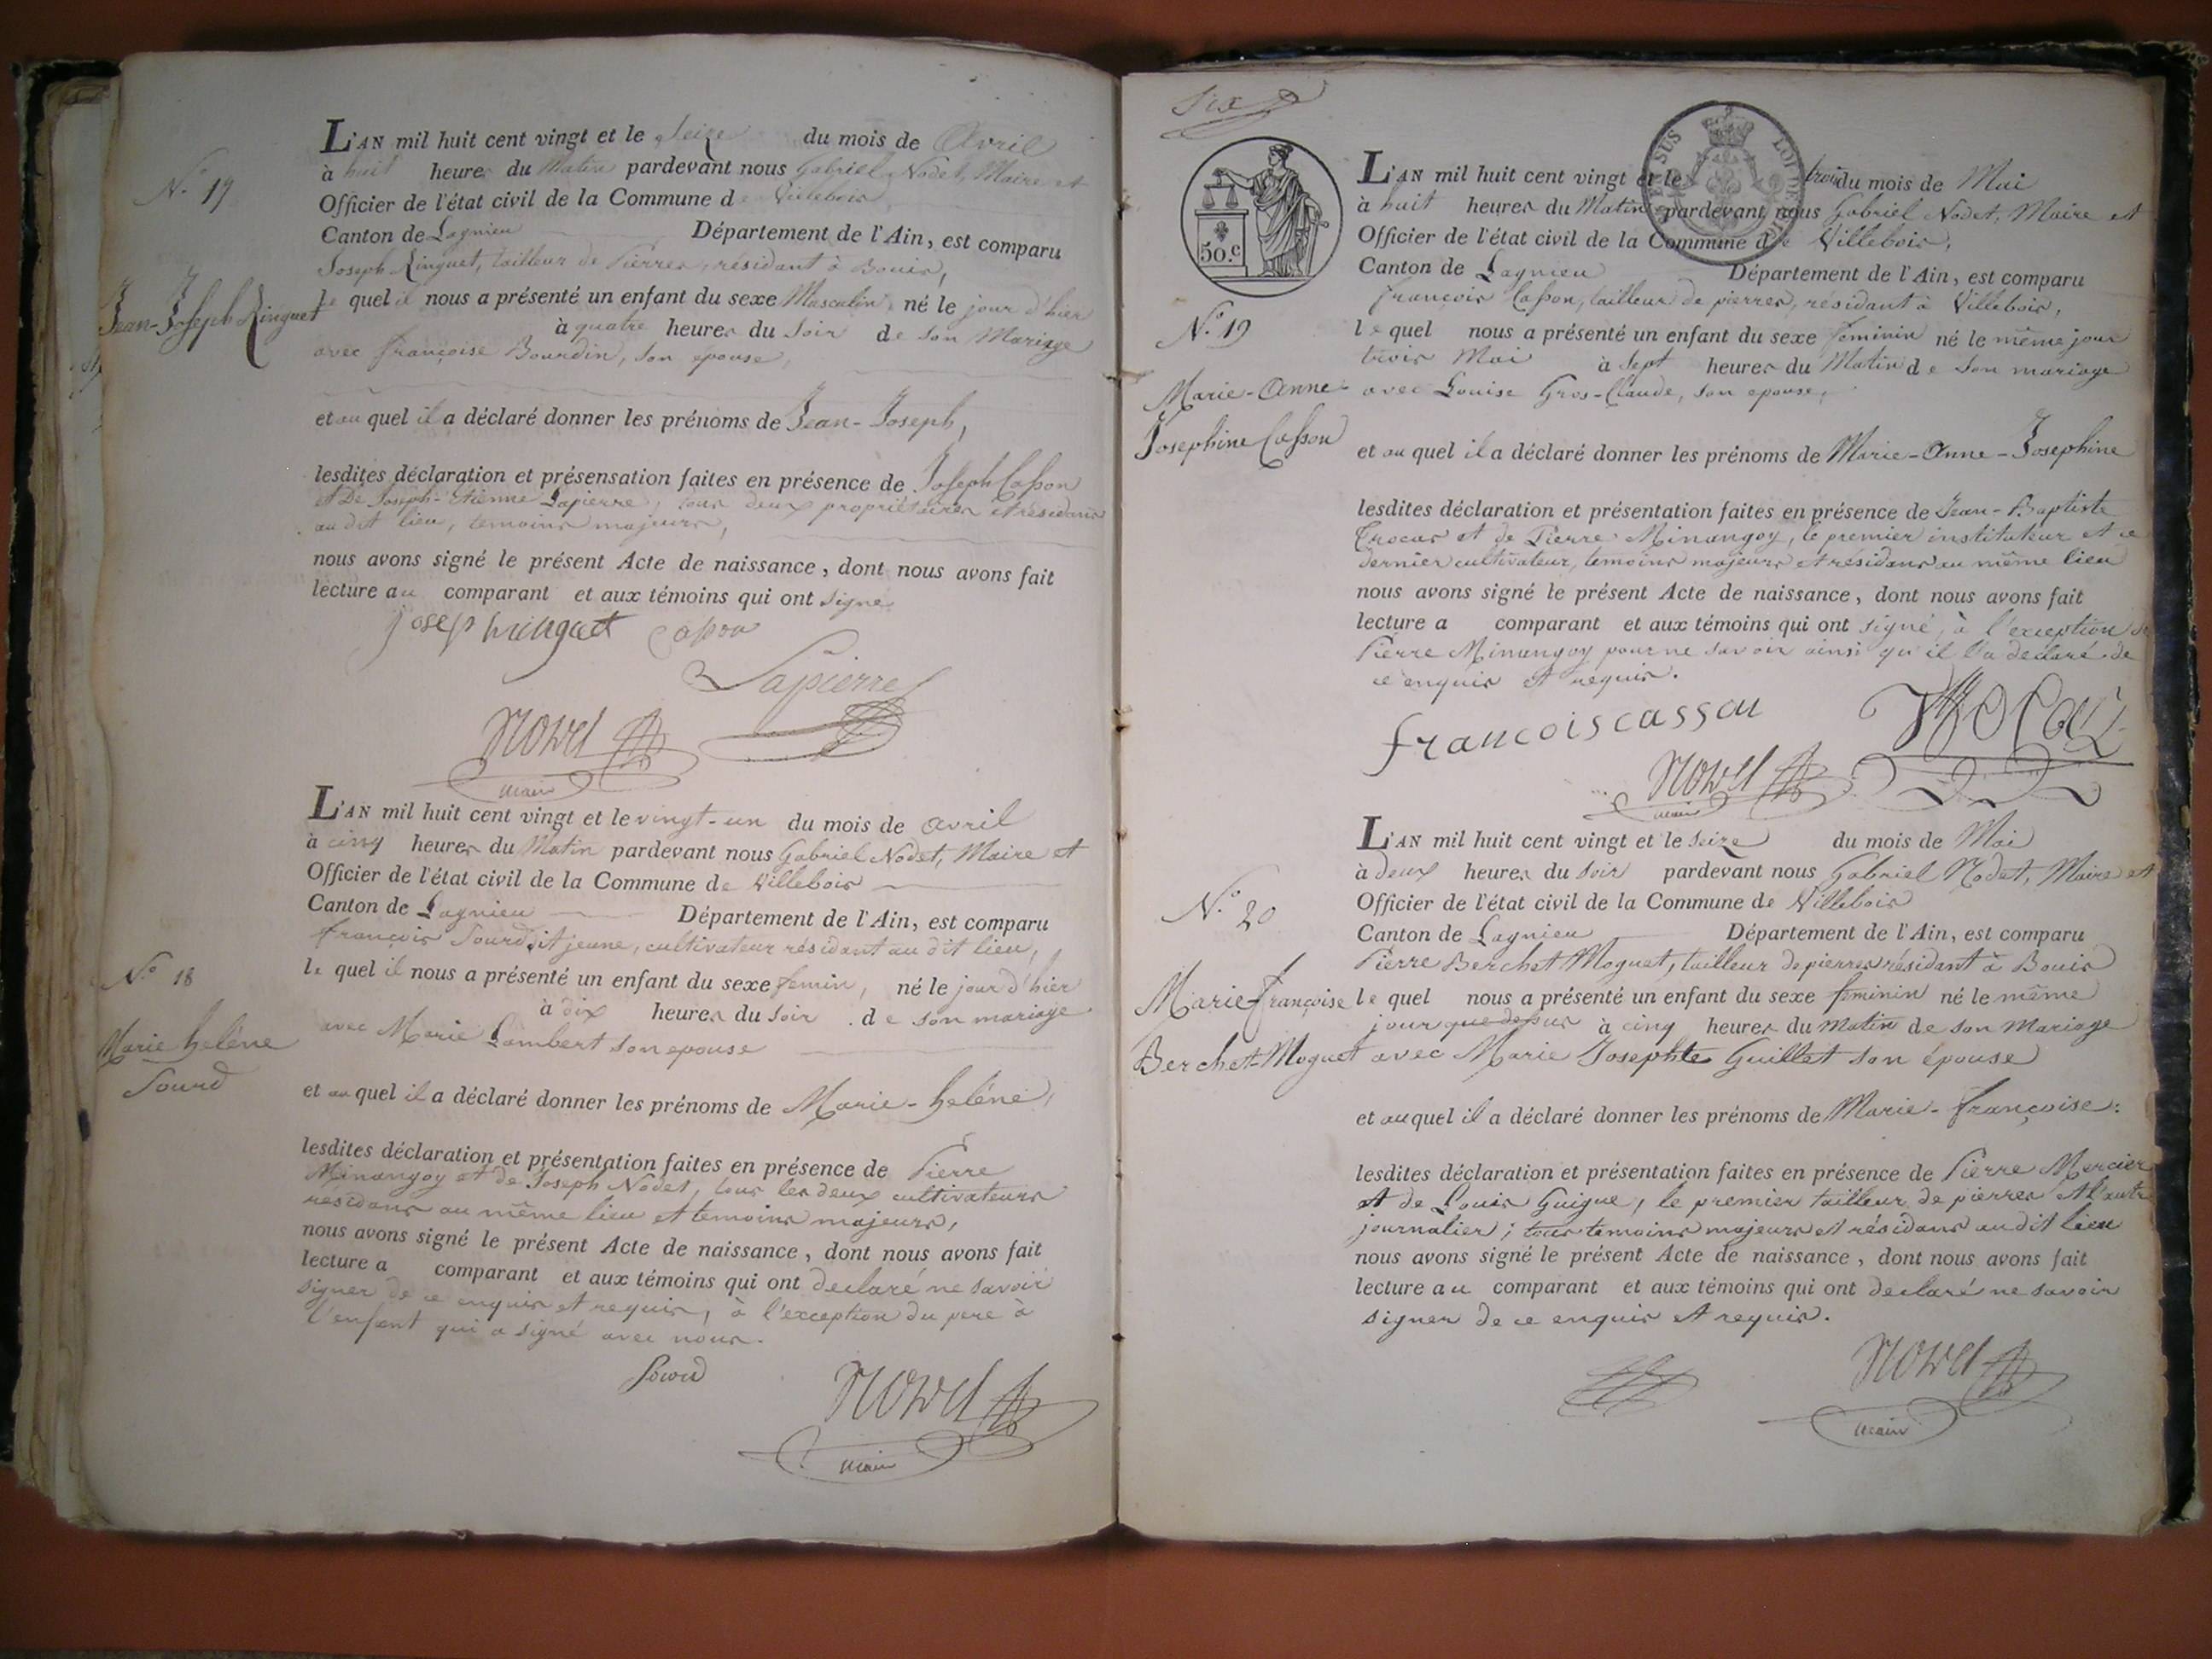 N.° 17
Jean-Joseph Ringuet
L'AN mil huit cent vingt et le Seize du mois de Avril
à huit heures du Matin pardevant nous Gabriel Nodet, Maire et
Officier de l'état civil de la Commune de Villebois
Canton de Lagnieu Département de l'Ain, est comparu
Joseph Ringuet, tailleur de Pierres, résidant à Bouis,
le quel il nous a présenté un enfant du sexe Masculin, né le jour d'hier
à quatre heures du Soir de son Mariage
avec françoise Bourdin, son epouse,
et au quel il a déclaré donner les prénoms de Jean-Joseph,
lesdites déclaration et présensation faites en présence de Joseph Casson
et De Joseph-Etienne Lapierre, tous deux propriétaires et résidans
au dit lieu, temoins majeurs,
nous avons signé le présent Acte de naissance, dont nous avons fait
lecture au comparant et aux témoins qui ont signé
joseph ringuet casson
Lapierre
Nodet
maire
N.° 18
Marie helène
Sourd
L'AN mil huit cent vingt et le vingt-un du mois de avril
à cinq heures du Matin pardevant nous Gabriel Nodet, Maire et
Officier de l'état civil de la Commune de Villebois
Canton de Lagnieu Département de l'Ain, est comparu
françois Sourd dit jeune, cultivateur résidant au dit lieu,
le quel il nous a présenté un enfant du sexe femin, né le jour d'hier
à dix heures du soir de son mariage
avec Marie Lambert son epouse
et au quel il a déclaré donner les prénoms de Marie-heléne,
lesdites déclaration et présentation faites en présence de Pierre
Minangoy et de Joseph Nodet, tous les deux cultivateurs
résidans au même lieu et temoins majeurs,
nous avons signé le présent Acte de naissance, dont nous avons fait
lecture a comparant et aux témoins qui ont declaré ne savoir
signer de ce enquis et requis, à l'exception du pere à
l'enfant qui a signé avec nous.
Sourd
Nodet
maire
Six
SUS
50.c
N.° 19
Marie-Anne
Josephine Casson
L'AN mil huit cent vingt et le trois du mois de Mai
à huit heures du Matin pardevant nous Gabriel Nodet, Maire et
Officier de l'état civil de la Commune de Villebois,
Canton de Lagnieu Département de l'Ain, est comparu
françois Casson, tailleur de pierres, résidant à Villebois,
le quel nous a présenté un enfant du sexe feminin né le même jour
trois Mai à Sept heures du Matin de son mariage
avec Louise Gros-Claude, son epouse,
et au quel il a déclaré donner les prénoms de Marie-Anne-Josephine
lesdites déclaration et présentation faites en présence de Jean-Baptiste
Trocas et de Pierre Minangoy, le premier instituteur et ce
dernier cultivateur, temoins majeurs et résidans au même lieu
nous avons signé le présent Acte de naissance, dont nous avons fait
lecture a comparant et aux témoins qui ont signé, à l'exception de
Pierre Minangoy pour ne savoir ainsi qu'il l'a déclaré de
ce enquis et requis.
francois casson
Nodet
maire
N.° 20
Marie-françoise
Berchet-Moguet
L'AN mil huit cent vingt et le seize du mois de Mai
à deux heures du soir pardevant nous Gabriel Nodet, Maire et
Officier de l'état civil de la Commune de Villebois
Canton de Lagnieu Département de l'Ain, est comparu
Pierre Berchet Moguet, tailleur de pierres résidant à Bouis
le quel nous a présenté un enfant du sexe feminin né le même
jour que dessus à cinq heures du matin de son Mariage
avec Marie Josephte Guillet son épouse
et au quel il a déclaré donner les prénoms de Marie-françoise.
lesdites déclaration et présentation faites en présence de Pierre Mercier
et de Louis Guigue, le premier tailleur de pierres et l'autre
journalier; tous temoins majeurs et résidans au dit lieu
nous avons signé le présent Acte de naissance, dont nous avons fait
lecture au comparant et aux témoins qui ont declaré ne savoir
signer de ce enquis et requis.
Nodet
maire